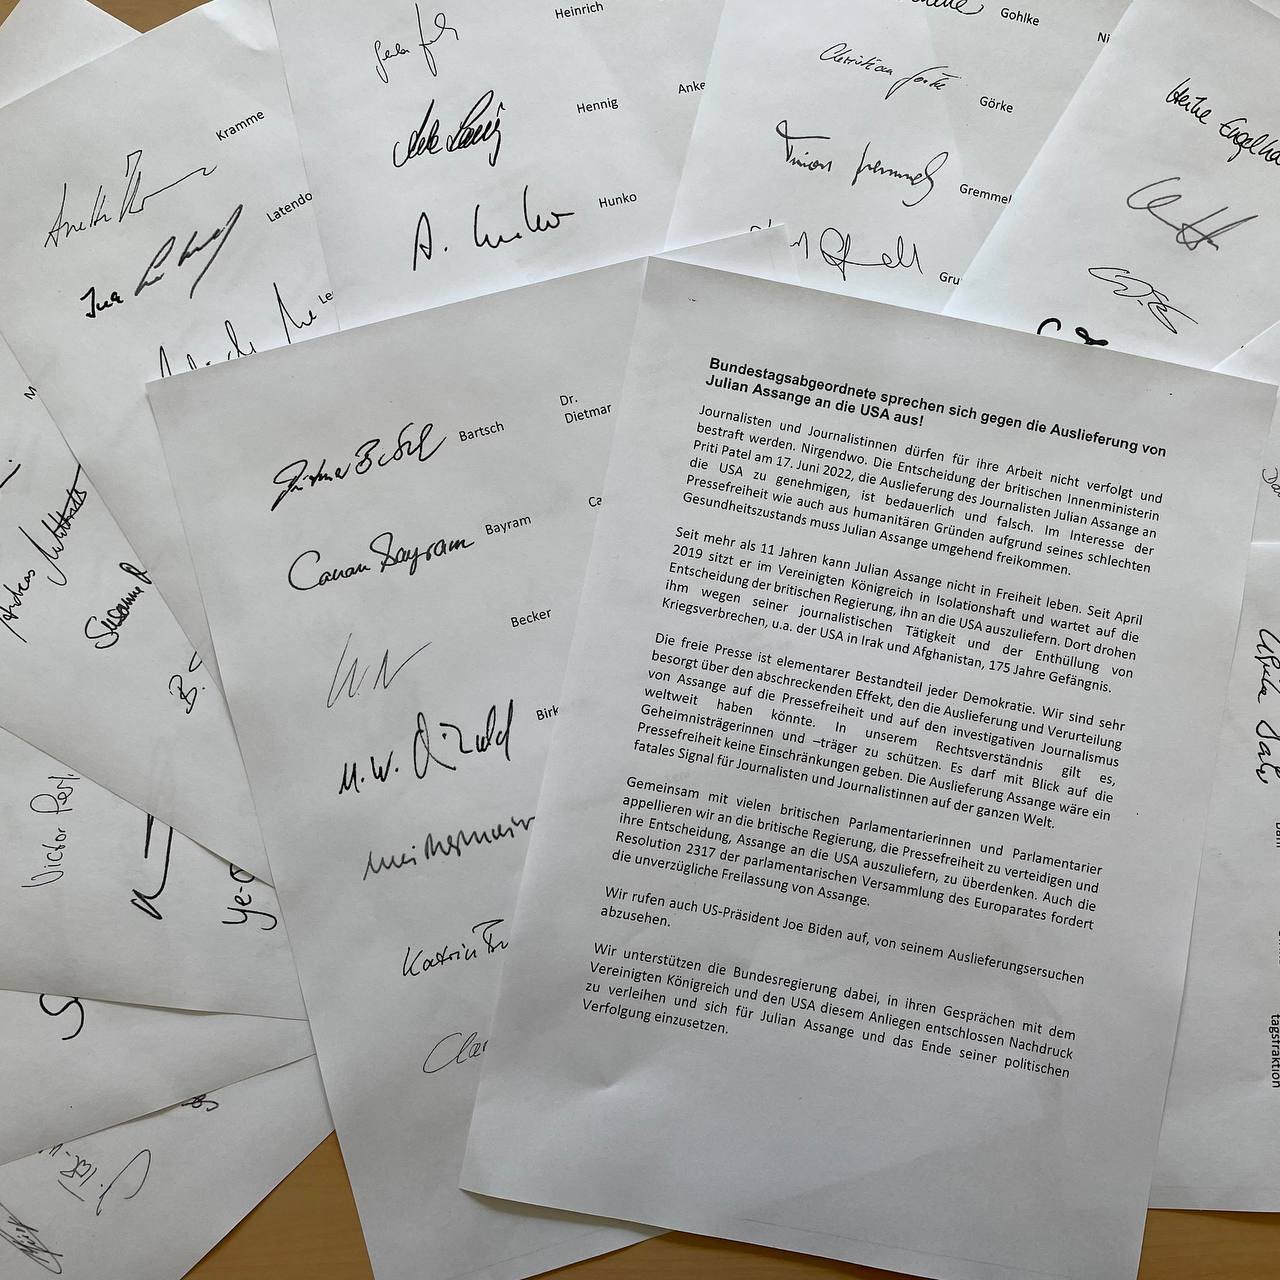 Heinrich
Gohlke
Kramme
Hennig
Anke
Christian Görke
Görke
Heike
Latendo
Hunko
A. Hunko
Gremmel
Gru
Dr.
Dietmar
Bartsch
Ca
Bayram
Canan Bayram
Becker
Birk
M. W. Birkwald
Susanne
Victor Perli
Katrin
Clar
tagsfraktion
Bundestagsabgeordnete sprechen sich gegen die Auslieferung von
Julian Assange an die USA aus!
Journalisten und Journalistinnen dürfen für ihre Arbeit nicht verfolgt und
bestraft werden. Nirgendwo. Die Entscheidung der britischen Innenministerin
Priti Patel am 17. Juni 2022, die Auslieferung des Journalisten Julian Assange an
die USA zu genehmigen, ist bedauerlich und falsch. Im Interesse der
Pressefreiheit wie auch aus humanitären Gründen aufgrund seines schlechten
Gesundheitszustands muss Julian Assange umgehend freikommen.
Seit mehr als 11 Jahren kann Julian Assange nicht in Freiheit leben. Seit April
2019 sitzt er im Vereinigten Königreich in Isolationshaft und wartet auf die
Entscheidung der britischen Regierung, ihn an die USA auszuliefern. Dort drohen
ihm wegen seiner journalistischen Tätigkeit und der Enthüllung von
Kriegsverbrechen, u.a. der USA in Irak und Afghanistan, 175 Jahre Gefängnis.
Die freie Presse ist elementarer Bestandteil jeder Demokratie. Wir sind sehr
besorgt über den abschreckenden Effekt, den die Auslieferung und Verurteilung
von Assange auf die Pressefreiheit und auf den investigativen Journalismus
weltweit haben könnte. In unserem Rechtsverständnis gilt es,
Geheimnisträgerinnen und –träger zu schützen. Es darf mit Blick auf die
Pressefreiheit keine Einschränkungen geben. Die Auslieferung Assange wäre ein
fatales Signal für Journalisten und Journalistinnen auf der ganzen Welt.
Gemeinsam mit vielen britischen Parlamentarierinnen und Parlamentarier
appellieren wir an die britische Regierung, die Pressefreiheit zu verteidigen und
ihre Entscheidung, Assange an die USA auszuliefern, zu überdenken. Auch die
Resolution 2317 der parlamentarischen Versammlung des Europarates fordert
die unverzügliche Freilassung von Assange.
Wir rufen auch US-Präsident Joe Biden auf, von seinem Auslieferungsersuchen
abzusehen.
Wir unterstützen die Bundesregierung dabei, in ihren Gesprächen mit dem
Vereinigten Königreich und den USA diesem Anliegen entschlossen Nachdruck
zu verleihen und sich für Julian Assange und das Ende seiner politischen
Verfolgung einzusetzen.